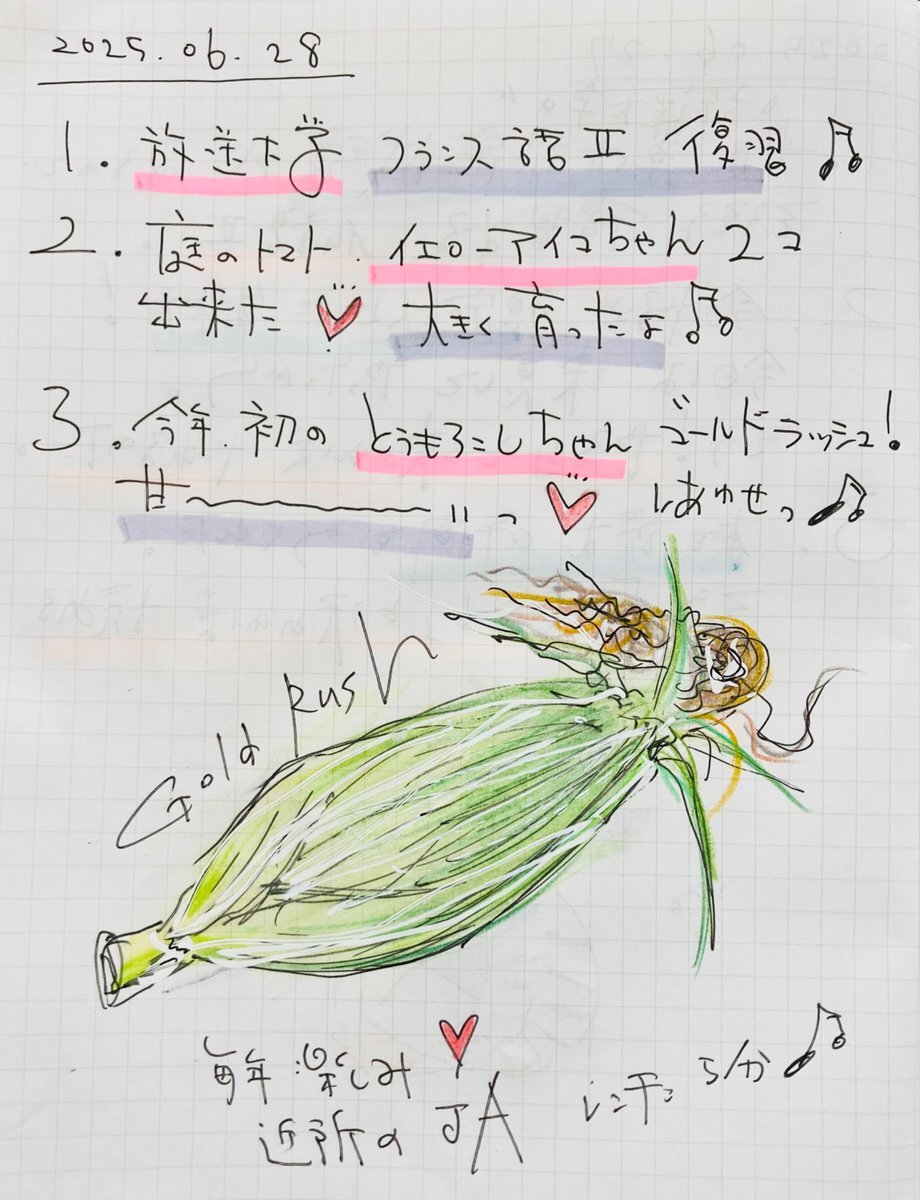 2025.06.28
1. 放送大学 フランス語Ⅱ 復習♫
2. 庭のトマト. イエローアイコちゃん 2コ
出来た♥ 大きく育ったよ♫
3. 今年初の とうもろこしちゃん ゴールドラッシュ!
甘〜〜〜〜〜〜いっ♥ しあわせっ♫
Gold Rush
毎年楽しみ♥
近所のJA 5分♫